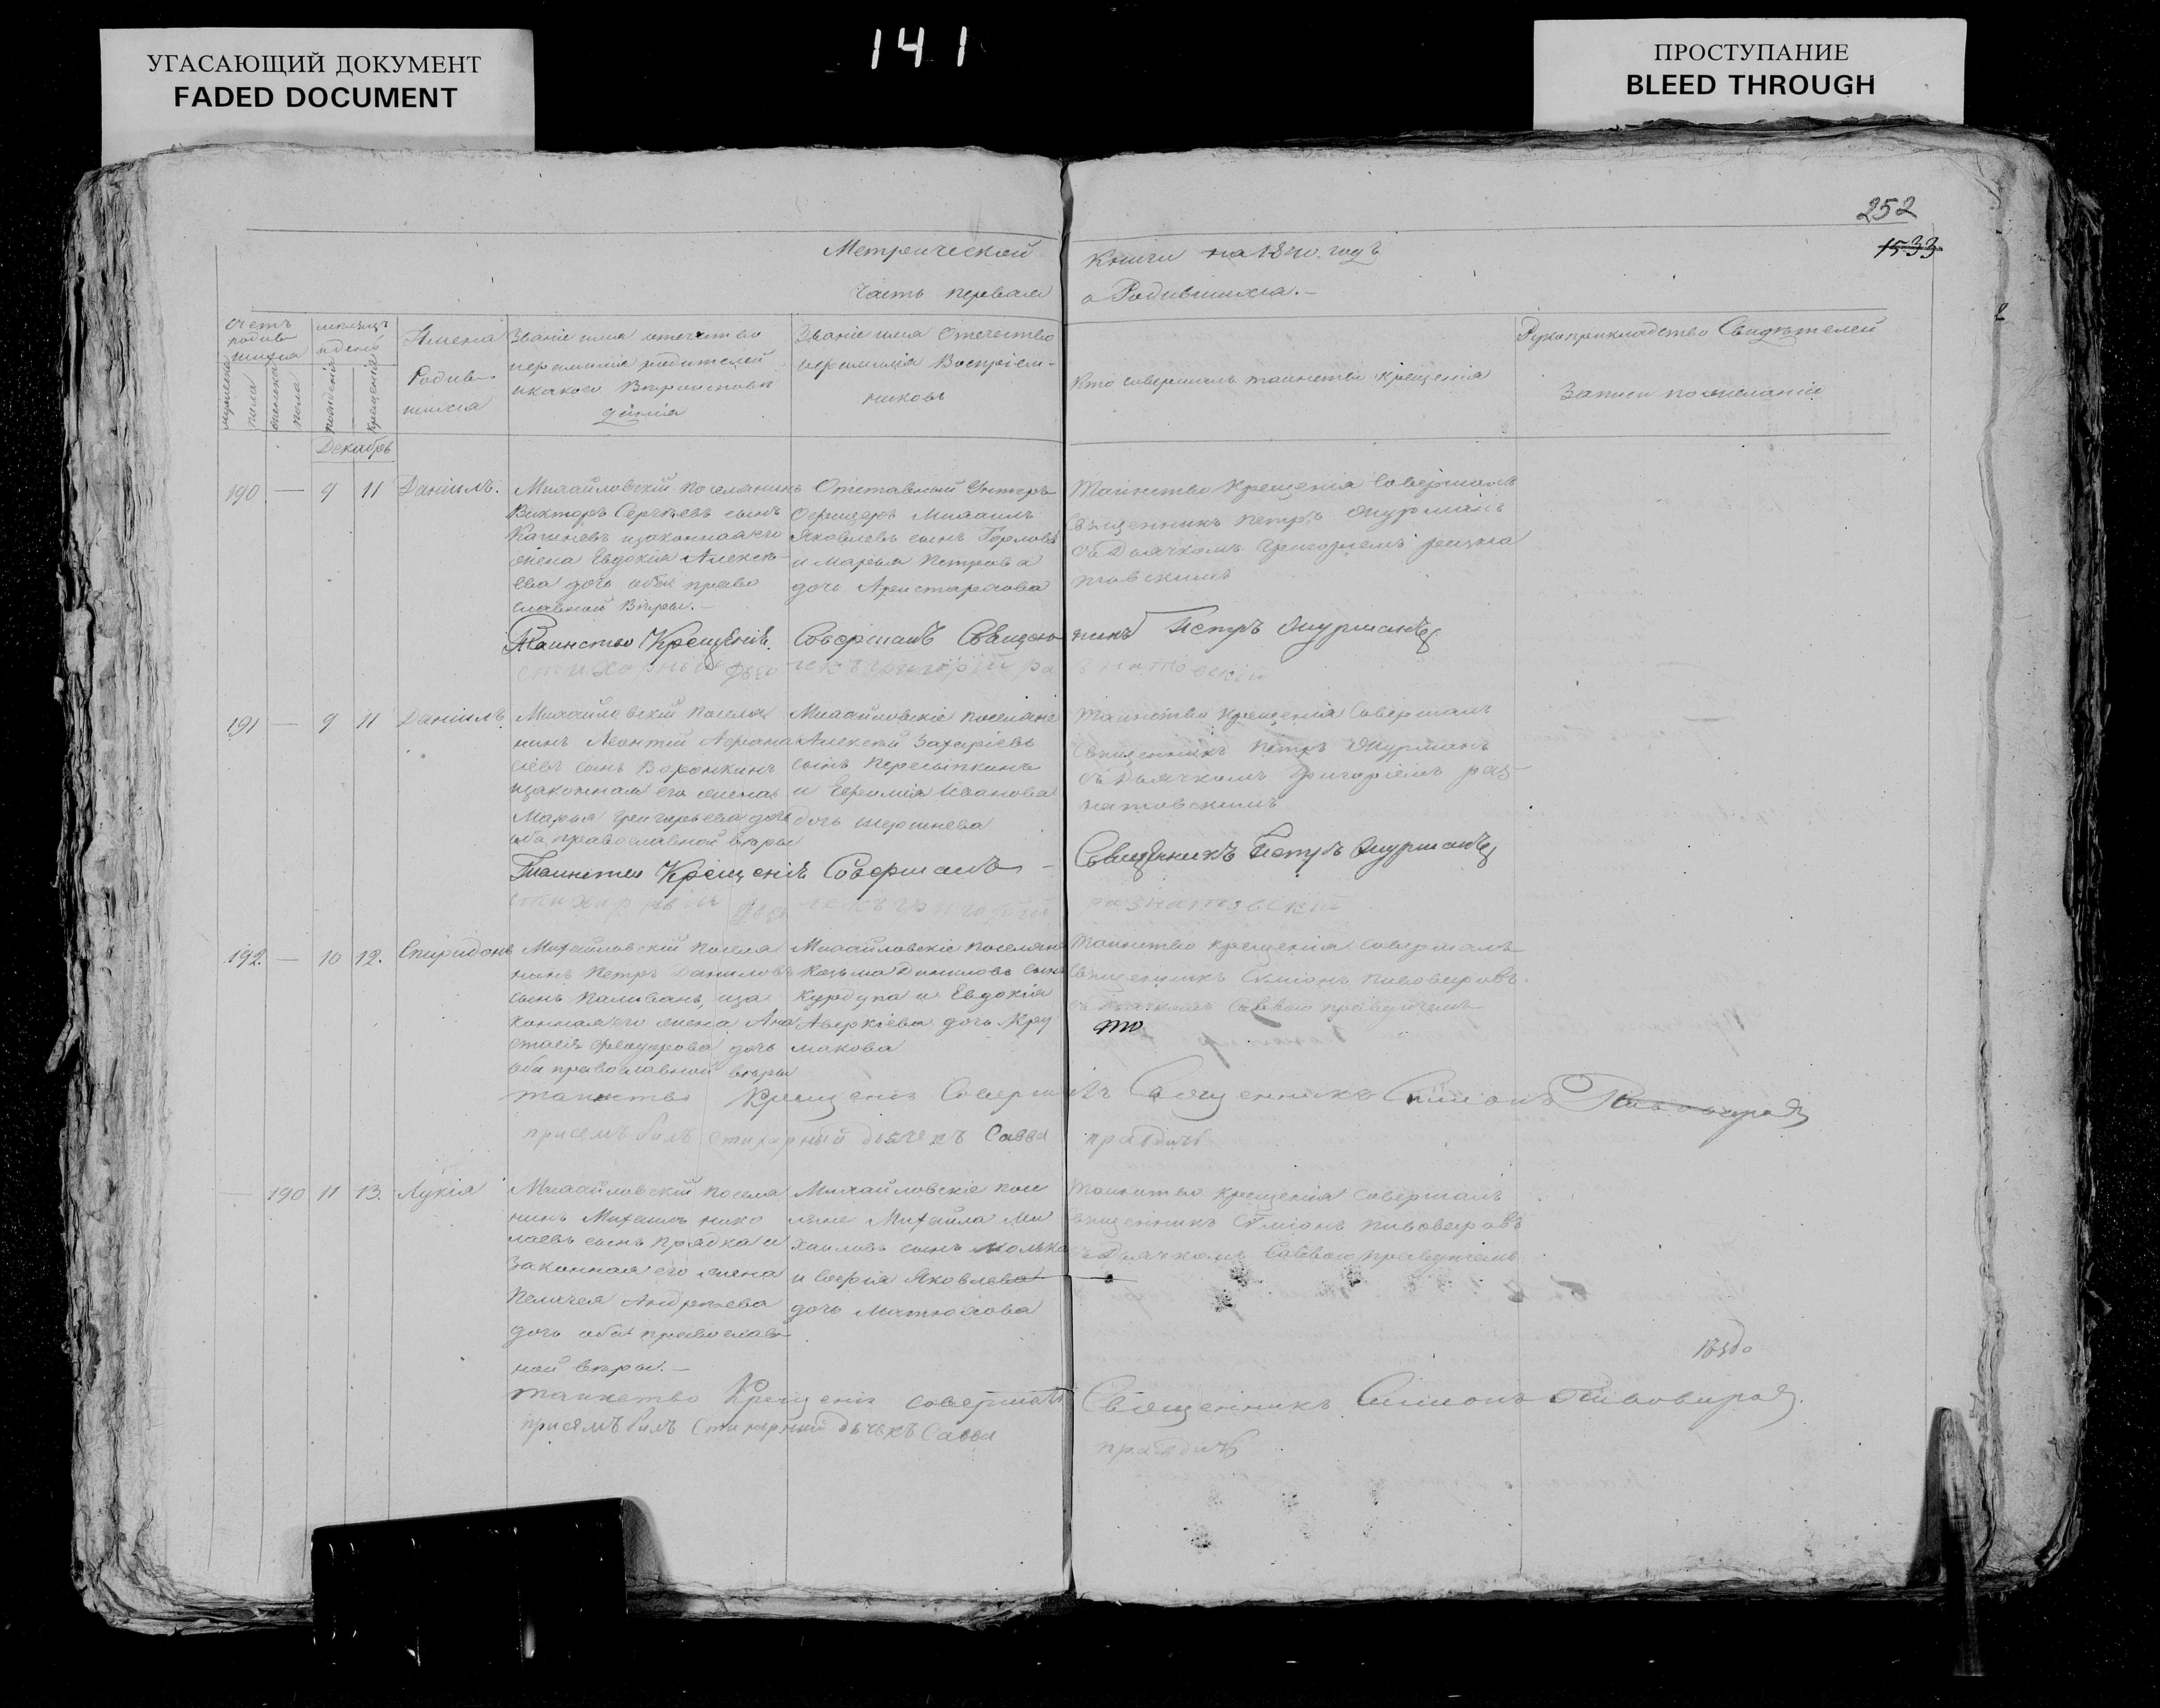 УГАСАЮЩИЙ ДОКУМЕНТ
FADED DOCUMENT
141
ПРОСТУПАНИЕ
BLEED THROUGH
252
1533
Метрической Книги на 1840 годъ
Часть первая о Родившихся.-
Счетъ родившихся
мужеска пола
женска пола
месяцъ и день
рождения
крещенія
Имена Родившихся
Званіе имя отечество
и фамилія родителей
и какого Вероисповедания
Званіе имя Отечество
и фамиліа Воспріем-
никовъ
Кто совершалъ таинство крещенія
Рукоприкладство Свидѣтелей
Записи по желанію
Декабрь
190 — 9 11 Даніилъ.
Михайловскій поселянинъ
Викторъ Сергѣевъ сынъ
и законная его
жена Евдокія Алексѣ-
ева дочь оба право
славной Вѣры.-
Отставный Унтеръ
Офицеръ Михаилъ
Яковлевъ сынъ Горловъ
и Марья Петрова
дочь Аристархова
Таинство Крещенія Совершалъ
Священникъ Петръ
съ Дьячкомъ Григоріемъ
Таинство Крещеніе Совершалъ Священникъ Петръ
стихарный
191 — 9 11 Даніилъ
Михайловскій поселя
нинъ Леонтій Афона
сіевъ сынъ Воронкинъ
и законная его жена
Марья Григорьева дочь
оба православной вѣры
Михайловскіе поселяне
Алексѣй Захаріевъ
сынъ Пересыпкинъ
и Ефимія Иванова
дочь Шершнева
Таинство крещенія Совершалъ
Священникъ Петръ
съ Дьячкомъ Григоріемъ раз
натовскимъ
Таинство Крещеніе Совершалъ — Священникъ Петръ
стихарный разнатовскій
192. — 10 12. Спиридонъ
Михайловскій поселя
нинъ Петръ Даниловъ
сынъ Паливанъ, и за
конная его жена Ана
стасія Федорова дочь
оба православной вѣры
Михайловскіе поселяне
Козьма Даниловъ сынъ
Курдупа и Евдокія
Аверкіева дочь Кру
макова
Таинство крещенія совершалъ
Священникъ Симіонъ Пивоваровъ.
съ Дьячкомъ Саввою
то
таинство Крещеніе Совершилъ Священникъ Симионъ
присемъ билъ стихарный дьячекъ Савва правдичъ
— 190 11 13. Лукія
Михайловскій посела
нинъ Михаилъ нико
лаевъ сынъ Прядка и
Законная его жена
Пелагея Андрѣева
дочь оба православ
ной вѣры.-
Михайловскіе посе
ляне Михайла Ми
хаиловъ сынъ Молька
и Софія Яковлева
дочь Матюхова
Таинство крещенія Совершалъ
Священникъ Симіонъ Пивоваровъ
съ Дьячкомъ Саввою
таинство Крещеніе совершалъ Священникъ Симионъ
присемъ билъ Стихарный дьячекъ Савва правдичъ